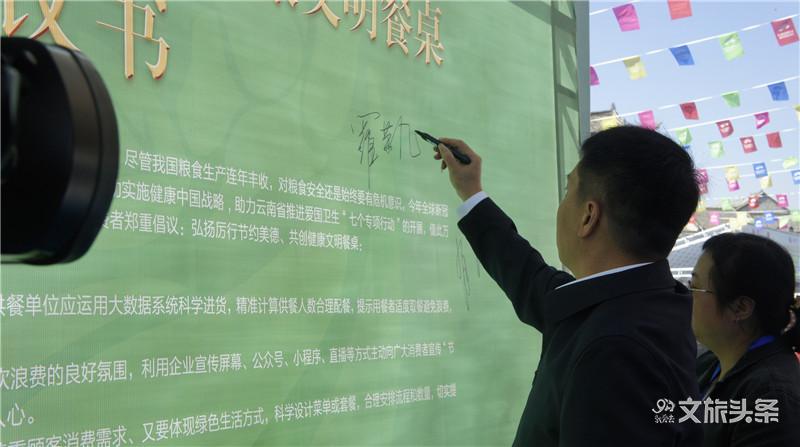 议书
文明餐桌
尽管我国粮食生产连年丰收，对粮食安全还是始终要有危机意识。今年全球新冠
实施健康中国战略，助力云南省推进爱国卫生“七个专项行动”的开展，值此万
费者郑重倡议：弘扬厉行节约美德、共创健康文明餐桌：
供餐单位应运用大数据系统科学进货，精准计算供餐人数合理配餐，提示用餐者适度取餐避免浪费，
浪费的良好氛围，利用企业宣传屏幕、公众号、小程序、直播等方式主动向广大消费者宣传“节
人心。
顾客消费需求、又要体现绿色生活方式，科学设计菜单或套餐，合理安排流程和数量，切实提
文旅头条